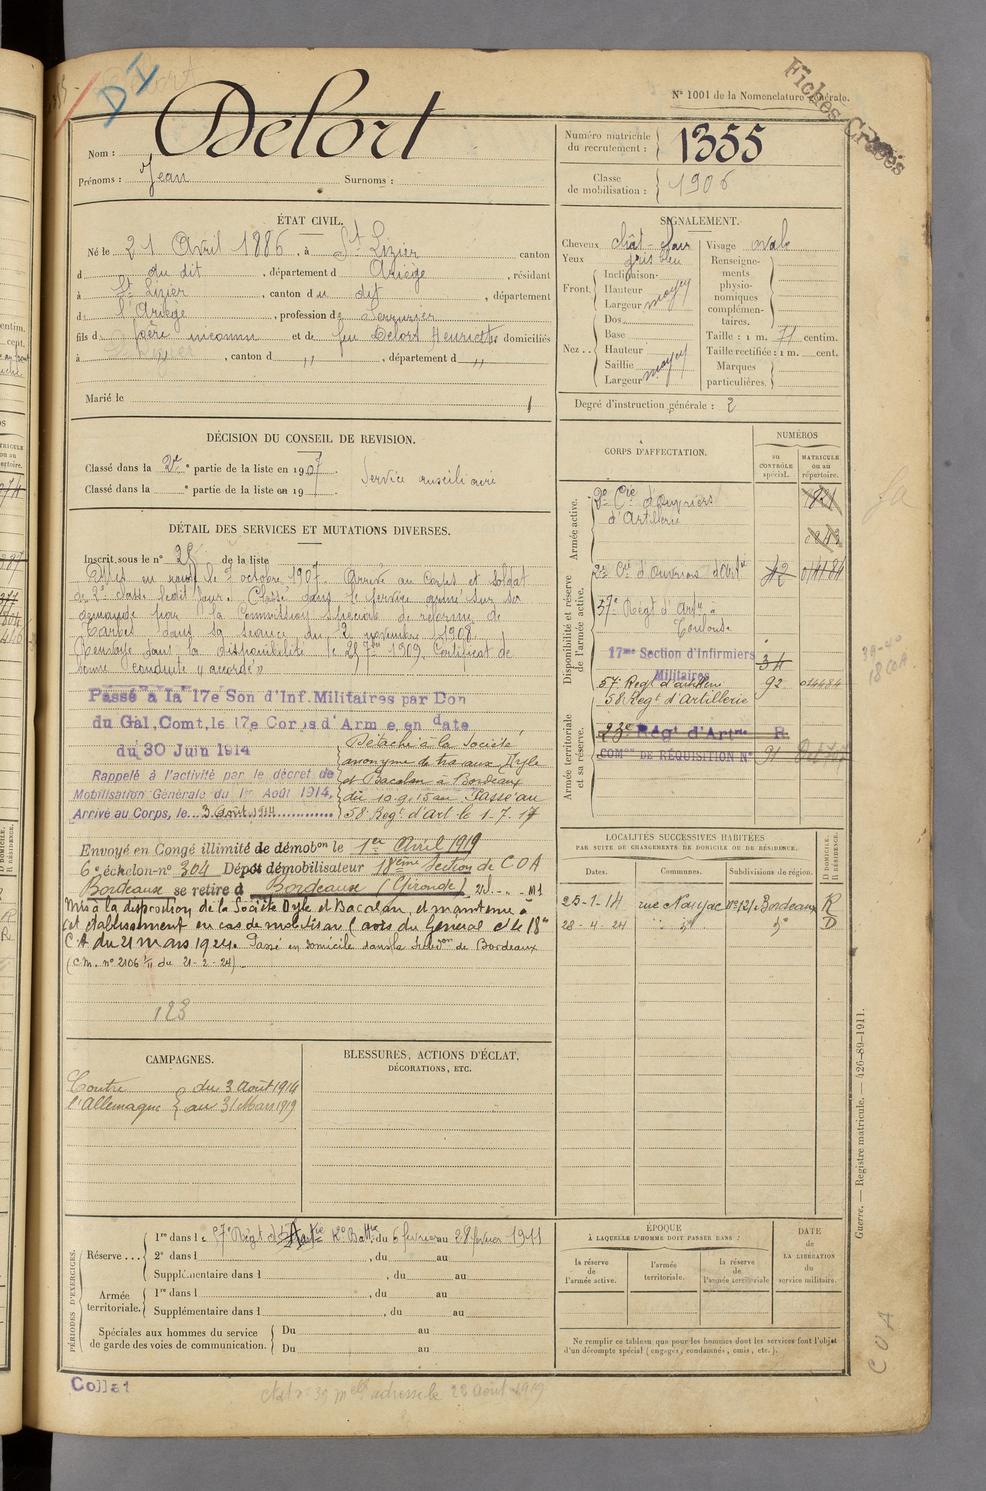 D I
Fiches Croisés
N° 1001 de la Nomenclature générale.
Nom : Delort
Prénoms : Jean Surnoms :
Numéro matricule du recrutement : 1355
Classe de mobilisation : 1906
ÉTAT CIVIL.
Né le 21 Avril 1886, à St Lizier canton
d du dit, département d Ariège, résidant
à St Lizier, canton du dit, département
d l'Ariège, profession de Serrurier
fils d père inconnu et de feu Delort Henriette domiciliés
à " , canton d " , département d "
Marié le
SIGNALEMENT.
Cheveux chât-clair
Yeux gris bleu
Front. Inclinaison
Hauteur
Largeur moyen
Nez .. Dos
Base
Hauteur
Saillie
Largeur moyen
Visage ovale
Renseignements physionomiques complémentaires.
Taille : 1 m. 71 centim.
Taille rectifiée : 1 m. cent.
Marques particulières.
Degré d'instruction générale : 2
DÉCISION DU CONSEIL DE REVISION.
Classé dans la 2e partie de la liste en 1907
Classé dans la e partie de la liste en 19
Service auxiliaire
DÉTAIL DES SERVICES ET MUTATIONS DIVERSES.
Inscrit sous le n° de la liste
le 7 octobre 1907. Arrivé au Corps et soldat
de 2e classe ledit jour. Classé dans le service armé sur sa
demande par la Commission spéciale de réforme de
Tarbes dans sa séance du 12 novembre 1908.
Renvoyé dans la disponibilité le 25 7bre 1909. Certificat de
bonne conduite "accordé"
Passé à la 17e Son d'Inf. Militaires par Don
du Gal, Comt, le 17e Corps d'Armée en date
du 30 Juin 1914
Rappelé à l'activité par le décret de
Mobilisation Générale du 1er Août 1914.
Arrivé au Corps, le 3 août 1914
Détaché à la Société
anonyme de travaux Dyle
et Bacalan à Bordeaux
du 10.9.15 au Passé au
58e Regt d'Art le 1-7-17
Envoyé en Congé illimité de démobon le 1er Avril 1919
6e échelon-n° 304 Dépôt démobilisateur 18ème Section de C O A
Bordeaux se retire à Bordeaux (Gironde)
Mis à la disposition de la Société Dyle et Bacalan, et maintenu à
cet établissement en cas de mobilison (avis du Général Ct le 18e
C.A du 21 mars 1924. Passé en domicile dans la Subdon de Bordeaux
(C.M. n° 2106 1/11 du 21-2-24)
123
CORPS D'AFFECTATION.
NUMÉROS
au CONTRÔLE spécial.
MATRICULE ou au répertoire.
Armée active.
2e Cie d'Ouvriers
d'Artillerie
Disponibilité et réserve de l'armée active.
2e Cie d'Ouvriers d'Artie 42
57e Régt d'Artie à
Toulouse
17me Section d'Infirmiers Militaires 34
57e Regt d'artillerie 92
58 Regt d'Artillerie
Armée territoriale et sa réserve.
23e Régt d'Artie R.
COMon DE RÉQUISITION N° 91
39-4°
18 COA
LOCALITÉS SUCCESSIVES HABITÉES
PAR SUITE DE CHANGEMENTS DE DOMICILE OU DE RÉSIDENCE.
Dates. Communes. Subdivisions de région. D DOMICILE. R RÉSIDENCE.
25-1-14 rue Nauyac n° 121 Bordeaux R
28-4-24 " d° d° D
CAMPAGNES.
Contre l'Allemagne du 3 Août 1914
au 31 Mars 1919
BLESSURES, ACTIONS D'ÉCLAT,
DÉCORATIONS, ETC.
PÉRIODES D'EXERCICES.
Réserve ... 1re dans le 57e Régt d'Artie 20e Battie du 6 février au 28 février 1911
2e dans l , du au
Supplémentaire dans l , du au
Armée territoriale. 1re dans l , du au
Supplémentaire dans l , du au
Spéciales aux hommes du service
de garde des voies de communication.
Du au
Du au
ÉPOQUE
À LAQUELLE L'HOMME DOIT PASSER DANS :
la réserve de l'armée active.
l'armée territoriale.
la réserve de l'armée territoriale
DATE de LA LIBÉRATION du service militaire.
Ne remplir ce tableau que pour les hommes dont les services font l'objet
d'un décompte spécial (engagés, condamnés, omis, etc.).
Guerre. — Registre matricule. — 426-89-1911.
C O A
Collat
adresse le 22 août 1919